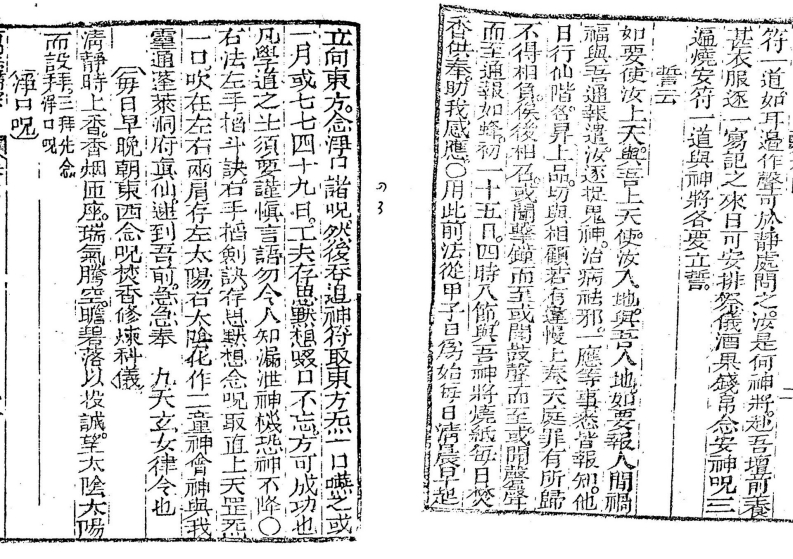 符一道如耳邊作聲可於静處問之汝是何神將赴吾壇前養
甚衣服逐一寫記之來日可安排祭儀酒果錢帛念安神呪三
遍燒安符一道與神將各要立誓
誓云
如要使汝上天與吾上天使汝入地與吾入地如要報人間禍
福與吾通報遣汝逐捉鬼神治病祛邪一應等事悉皆報知他
日行仙階各昇上品切與相顧若有違慢上奏天庭罪有所歸
不得相負俟後相召或聞擊錚而至或聞鼓聲而至或聞磬聲
而至通報如蜂初一十五日四時八節與吾神將燒紙每日焚
香供奉助我感應〇用此前法從甲子日爲始每日清晨早起
立向東方念淨口諸呪然後吞追神符取東方炁一口嚥之或
一月或七七四十九日工夫存思黙想毁口不忘方可成功也
凡學道之士須要謹慎言語勿令人知漏泄神機恐神不降〇
右法左手搯斗訣右手搯劍訣存思黙想念呪取直上天罡炁
一口吹在左右兩肩存左太陽右太陰化作二童神會神與我
靈通蓬萊洞府真仙速到吾前急急奉 九天玄女律令也
(每日早晚朝東西念呪焚香修煉科儀)
清静時上香香烟匝座瑞氣騰空瞻碧落以投誠望太陰太陽
而設拜三拜先念淨口呪
(淨口呪)